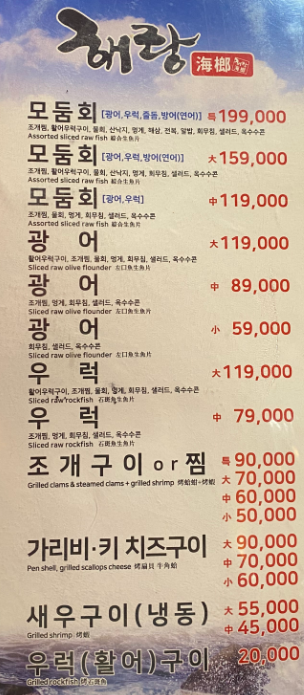 해랑 海榔
모둠회 [광어,우럭,줄돔,방어(연어)] 특 199,000
조개찜, 활어우럭구이, 물회, 산낙지, 멍게, 해삼, 전복, 알밥, 회무침, 샐러드, 옥수수콘
Assorted sliced raw fish 綜合生魚片
모둠회 [광어,우럭,방어(연어)] 大 159,000
조개찜, 활어우럭구이, 물회, 산낙지, 멍게, 회무침, 샐러드, 옥수수콘
Assorted sliced raw fish 綜合生魚片
모둠회 [광어,우럭] 中 119,000
조개찜, 물회, 멍게, 회무침, 샐러드, 옥수수콘
Assorted sliced raw fish 綜合生魚片
광 어 大 119,000
활어우럭구이, 조개찜, 물회, 멍게, 회무침, 샐러드, 옥수수콘
Sliced raw olive flounder 左口魚生魚片
광 어 中 89,000
조개찜, 멍게, 회무침, 샐러드, 옥수수콘
Sliced raw olive flounder 左口魚生魚片
광 어 小 59,000
회무침, 샐러드, 옥수수콘
Sliced raw olive flounder 左口魚生魚片
우 럭 大 119,000
활어우럭구이, 조개찜, 물회, 멍게, 회무침, 샐러드, 옥수수콘
Sliced raw rockfish 石斑魚生魚片
우 럭 中 79,000
조개찜, 멍게, 회무침, 샐러드, 옥수수콘
Sliced raw rockfish 石斑魚生魚片
조개구이 or 찜 특 90,000
Grilled clams & steamed clams + grilled shrimp 烤蛤蜊+烤蝦
大 70,000
中 60,000
小 50,000
가리비·키 치즈구이 大 90,000
Pen shell, grilled scallops cheese 烤扇貝 牛角蛤
中 70,000
小 60,000
새우구이(냉동) 大 55,000
Grilled shrimp 烤蝦
中 45,000
우럭(활어)구이 20,000
Grilled rockfish 烤石斑魚